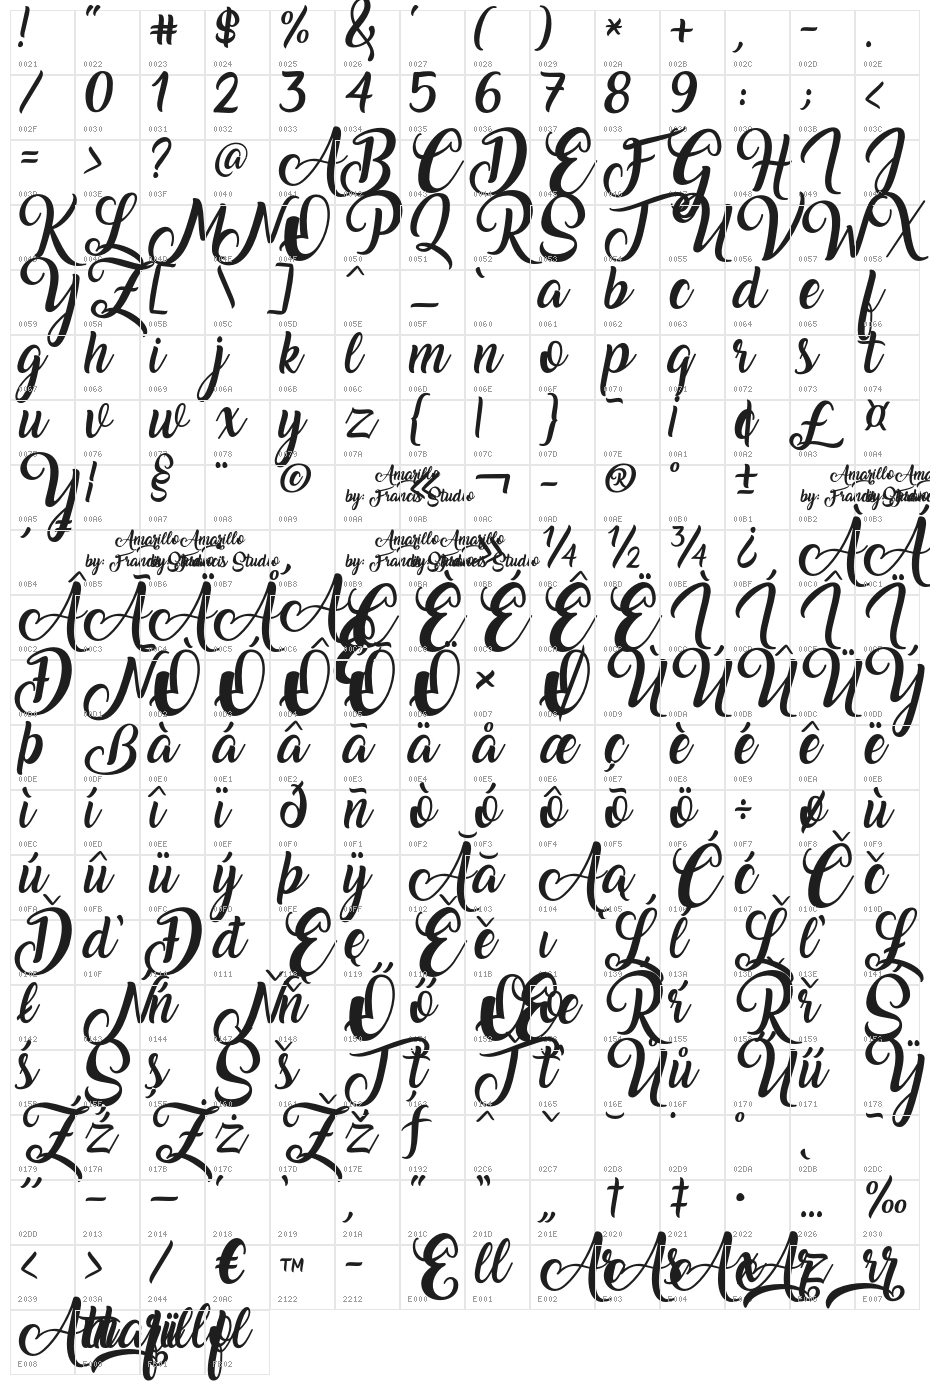 ! " # $ % & ' ( ) * + , - .
0021 0022 0023 0024 0025 0026 0027 0028 0029 002A 002B 002C 002D 002E
/ 0 1 2 3 4 5 6 7 8 9 : ; <
002F 0030 0031 0032 0033 0034 0035 0036 0037 0038 0039 003A 003B 003C
= > ? @ A B C D E F G H I J
003D 003E 003F 0040 0041 0042 0043 0044 0045 0046 0047 0048 0049 004A
K L M N O P Q R S T U V W X
004B 004C 004D 004E 004F 0050 0051 0052 0053 0054 0055 0056 0057 0058
Y Z [ \ ] ^ _ ` a b c d e f
0059 005A 005B 005C 005D 005E 005F 0060 0061 0062 0063 0064 0065 0066
g h i j k l m n o p q r s t
0067 0068 0069 006A 006B 006C 006D 006E 006F 0070 0071 0072 0073 0074
u v w x y z { | } ~ ¡ ¢ £ ¤
0075 0076 0077 0078 0079 007A 007B 007C 007D 007E 00A1 00A2 00A3 00A4
¥ ¦ § ¨ © Amarillo by: Francis Studio « ¬ - ® ° ± Amarillo by: Francis Studio
00A5 00A6 00A7 00A8 00A9 00AA 00AB 00AC 00AD 00AE 00B0 00B1 00B2 00B3
´ Amarillo Amarillo by: Francis Studio ¸ Amarillo Amarillo by: Francis Studio » ¼ ½ ¾ ¿ À Á
00B4 00B5 00B6 00B7 00B8 00B9 00BA 00BB 00BC 00BD 00BE 00BF 00C0 00C1
Â Ã Ä Å Æ Ç È É Ê Ë Ì Í Î Ï
00C2 00C3 00C4 00C5 00C6 00C7 00C8 00C9 00CA 00CB 00CC 00CD 00CE 00CF
Ð Ñ Ò Ó Ô Õ Ö × Ø Ù Ú Û Ü Ý
00D0 00D1 00D2 00D3 00D4 00D5 00D6 00D7 00D8 00D9 00DA 00DB 00DC 00DD
þ B à á â ã ä å æ ç è é ê ë
00DE 00DF 00E0 00E1 00E2 00E3 00E4 00E5 00E6 00E7 00E8 00E9 00EA 00EB
ì í î ï ð ñ ò ó ô õ ö ÷ ø ù
00EC 00ED 00EE 00EF 00F0 00F1 00F2 00F3 00F4 00F5 00F6 00F7 00F8 00F9
ú û ü ý þ ÿ Ă ă Ą ą Ć ć Č č
00FA 00FB 00FC 00FD 00FE 00FF 0102 0103 0104 0105 0106 0107 010C 010D
Ď ď Đ đ Ę ę Ě ě ı Ĺ ĺ Ľ ľ Ł
010E 010F 0110 0111 0118 0119 011A 011B 0131 0139 013A 013D 013E 0141
ł Ń ń Ň ň Ő ő Œ œ Ŕ ŕ Ř ř Ś
0142 0143 0144 0147 0148 0150 0151 0152 0153 0154 0155 0158 0159 015A
ś Ş ş Š š Ţ ţ Ť ť Ů ů Ű ű Ÿ
015B 015E 015F 0160 0161 0162 0163 0164 0165 016E 016F 0170 0171 0178
Ź ź Ż ż Ž ž ƒ ˆ ˇ ˘ ˙ ˚ ˛ ˜
0179 017A 017B 017C 017D 017E 0192 02C6 02C7 02D8 02D9 02DA 02DB 02DC
˝ – — ‘ ’ ‚ “ ” „ † ‡ • … ‰
02DD 2013 2014 2018 2019 201A 201C 201D 201E 2020 2021 2022 2026 2030
‹ › ⁄ € ™ − E ll
2039 203A 2044 20AC 2122 2212 E000 E001 E002 E003 E004 E007
E008 FB02